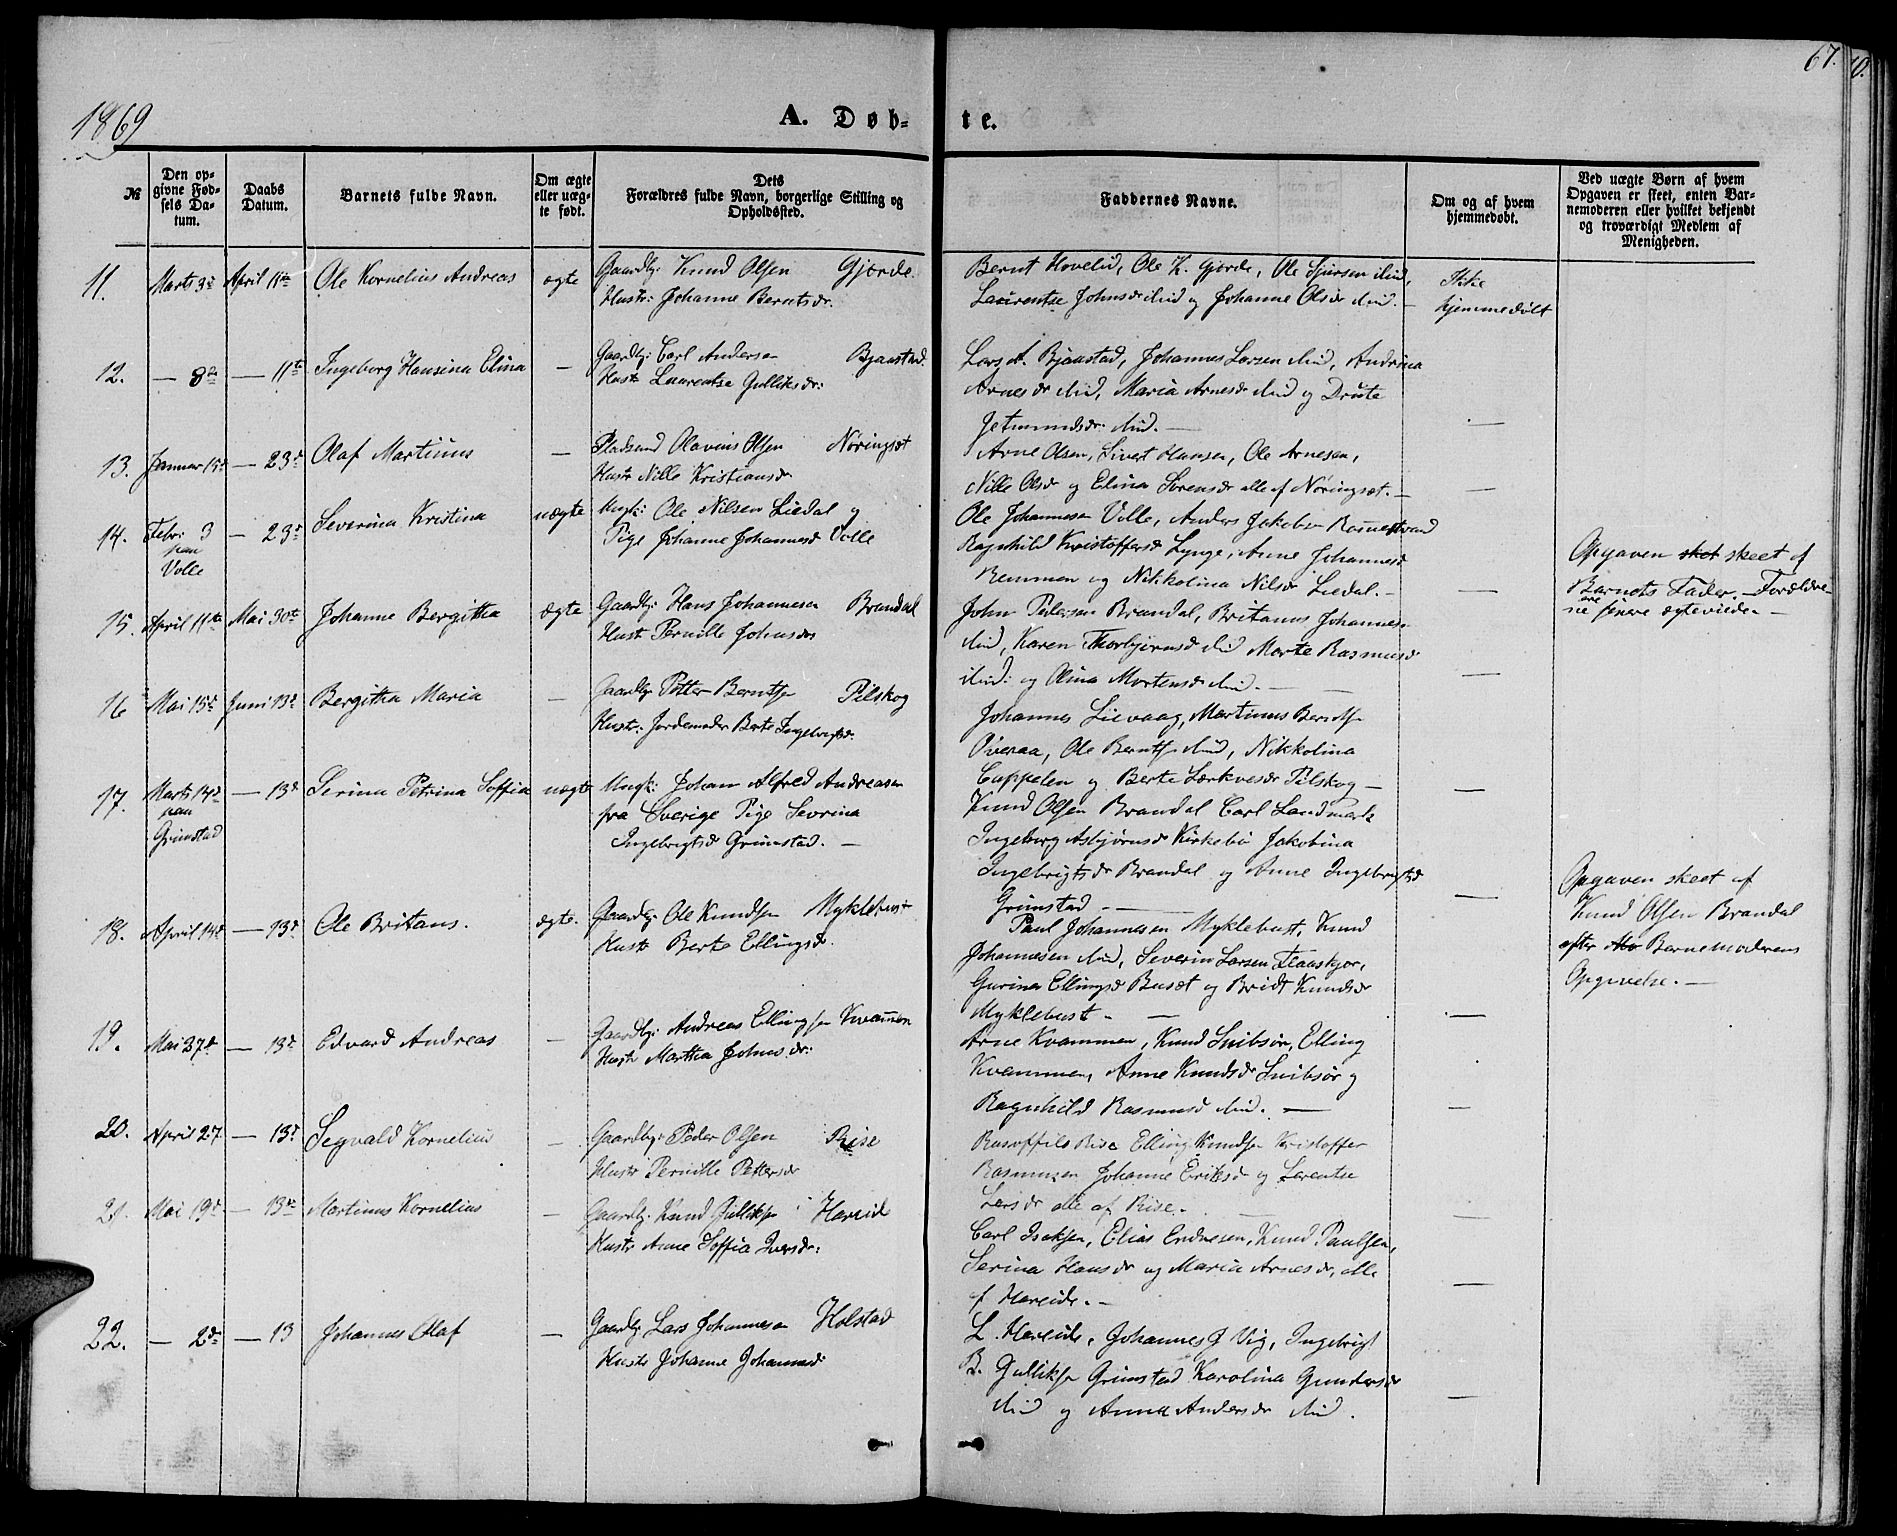 1869
A. Døb-
te.
67.
№
Den op-
givne Fød-
sels Da-
tum.
Daabs
Datum.
Barnets fulde Navn.
Om ægte
eller uæg-
te født.
Dets
Forældres fulde Navn, borgerlige Stilling og
Opholdssted.
Faddernes Navne.
Om og af hvem
hjemmedøbt.
Ved uægte Børn af hvem
Opgaven er skeet, enten Bar-
nemoderen eller hvilket bekjendt
og troværdigt Medlem af
Menigheden.
11. Marts 3d April 11te Ole Kornelius Andreas ægte Gaardbr: Knud Olsen Gjerde
Hustr: Johanne Berntsdr.
Bernt Hovelid, Ole K. Gjerde, Ole Sjursen ibid,
Laurentse Johnsdr ibid og Johanne Olsdr ibid. —
Ikke
hjemmedøbt
12. — 8de — 11te Ingeborg Hansina Elina — Gaardbr: Carl Andersen Bjaastad
Hustr Laurentse Gulliksdr:
Lars A. Bjaastad, Johannes Larsen ibid, Andrina
Arnesdr ibid, Maria Arnesdr ibid og Drute
Jetmundsdr. ibid. —
—
13. Januar 15d — 23d Olaf Martinus — Pladsmd Olavius Olsen Nøringset
Hustr Nille Kristiansdr
Arne Olsen, Sivert Hansen, Ole Arnesen,
Nille Olsdr og Elina Sørensdr alle af Nøringset. —
—
14. Febr: 3 paa Volle — 23d Severina Kristina uægte Ungk: Ole Nilsen Liedal og
Pige Johanne Johannesd Volle
Ole Johannesen Volle, Anders Jakobsen
Ragnhild Kristoffersd Lynge, Anne Johannesd
Remmen og Nikkolina Nilsdr Liedal. —
—
Opgaven skeet skeet af
Barnets Fader. — Forældre-
ne senere ægteviede. —
15. April 11te Mai 30te Johanne Bergitha ægte Gaardbr: Hans Johannesen Brandal
Hustr Pernille Johnsdr
John Petersen Brandal, Britanus Johannes-
ibid, Karen Thorbjørnsd ibid Marte Rasmusd
ibid: og Olina Mortensdr ibid. —
—
16 Mai 15d Juni 13d Bergitha Maria — Gaardbr Petter Berntsen Pilskog
Hustr: Jordemoder Berte Ingebrigtsdr.
Johannes Lievaag, Martinus Berntsen
Overaa, Ole Berntsen ibid, Nikkolina
Cappelen og Berte Lærkvesdr Pilskog —
—
17. Marts 14d paa Grimstad — 13d Serina Petrina Soffia uægte Ungk: Johan Alfred Andreasen
fra Sverige Pige Sevrina
Ingebrigtsd Grimstad. —
Knud Olsen Brandal Carl Landmark
Ingeborg Asbjørnsd Kirkebø Jakobina
Ingebrigtsdr Brandal og Anne Ingebrigtsd
Grimstad — —
—
Opgaven skeet af
Knud Olsen Brandal
efter Mo Barnemoderens
Opgivelse. —
18. April 14d — 13d Ole Britans. ægte. Gaardbr: Ole Knudsen Myklebust
Hustr Berte Ellingsdr.
Paul Johannesen Myklebust, Knud
Johannesen ibid, Severin Larsen Flaaskjær,
Gurina Ellingsd Buset og Bridt Knudsdr
Myklebust — —
—
19. Mai 27d — 13d Edvard Andreas — Gaardbr: Andreas Ellingsen Kvammen
Hustr Martha Johnsdr:
Arne Kvammen, Knud Snibsør, Elling
Kvammen, Anne Knudsdr Snibsør og
Ragnhild Rasmusd ibid. —
—
20. April 27 — 13d Segvald Kornelius — Gaardbr: Peder Olsen Rise
Hustr Pernille Pettersdr
Rise Elling Knudsen Kristoffer
Rasmusen Johanne Eriksd og Lorentse
Larsdr alle af Rise. —
—
21. Mai 19d — 13de Martinus Kornelius — Gaardbr. Knud Gulliksen Hareid
Hustr Anne Soffia Iversdr:
Carl Isaksen, Elias Endresen, Knud Paulsen,
Serina Hansdr og Maria Arnesdr, alle
f Hareide. —
—
22. — 2d — 13 Johannes Olaf — Gaardbr Lars Johannesen Holstad
Hustr Johanne Johannesd:
L. Hareide, Johannes J Vig, Ingebrigt
B. Gulliksen Grimstad Karolina Gundersdr
ibid og Anna Andersdr ibid.
—